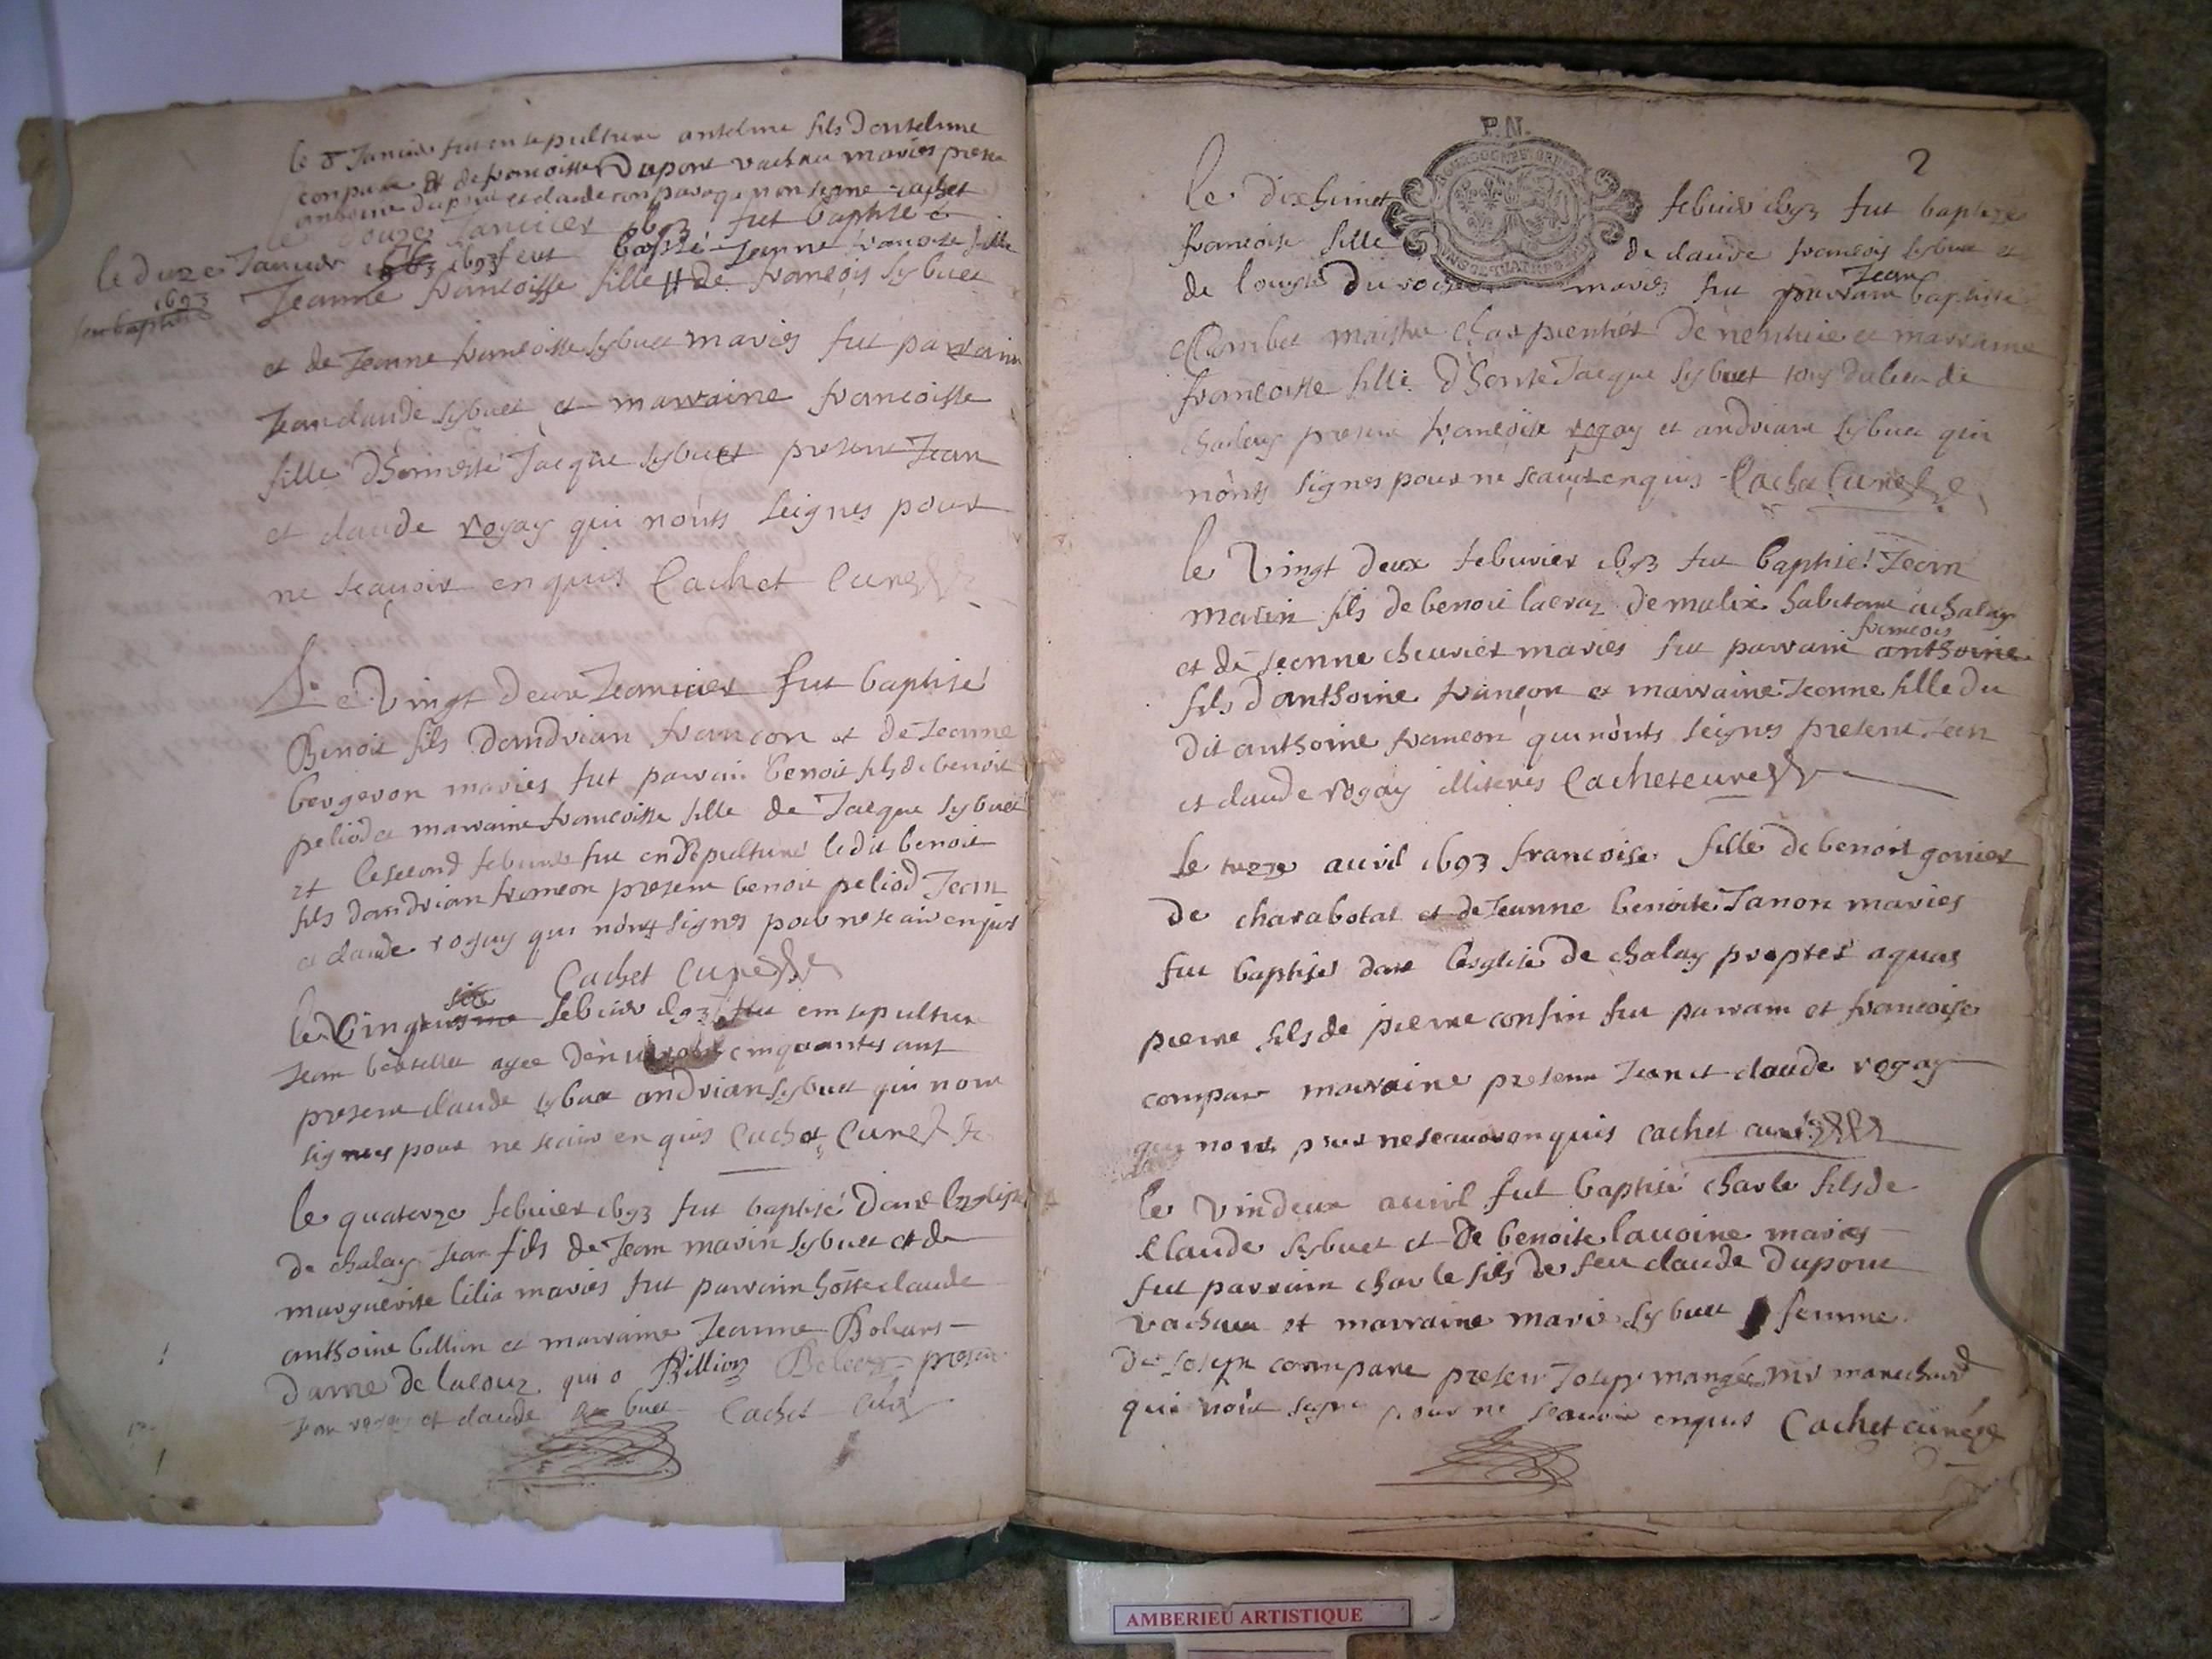 le 8 Janvier fut en sepulture antelme fils Dantelme
compare et de francoisse Dupont vachau maries presen
antoine dupont et claude compare qui non signe cachet
le douze Janvier 1693 fut baptisé
le duze Janvier 1693 feut baptisé Jeanne francoise fille
1693
Jeanne francoisse fille de francois sybuet
et de Jeanne francoisse sybuet maries fut parrain
Jeanclaude sybuet et marraine francoisse
fille d'honneste Jacque sybuet present Jean
et claude rogay qui nonts seignes pour
ne scavoir enquis Cachet Cure
Le Vingt Deux Jeanvier fut baptisé
Benoit fils Dandrian francon et de Jeanne
bergeron maries fut parrain benoit fils de benoit
peliod et marraine francoisse fille de Jacque sybuet
et le second febvrier fut en sepulture ledit benoit
fils dandrian francon present benoit peliod Jean
et claude rogay qui nont signes pour ne scair enquis
Cachet Cure
le Cinq febvier 1693 fut em sepulture
Jean agee cinquantes ans
present claude sybuet andrian sybuet qui nont
signes pour ne scair enquis Cachet Cure
le quatorze febvier 1693 fut baptisé Dans leglise
de chalay Jean fils de Jean marin sybuet et de
marguerite lilia maries fut parrain hoste claude
anthoine billion et marraine Jeanne
Dame de lacouz qui o Billion present
Jean rogay et claude sybuet Cachet cure
P.N.
2
le dixhuict febvier 1693 fut baptizee
francoise fille de claude francois sybuet et
de maries fut parrain Jean baptiste
Combet maistre charpentier De et marraine
francoisse fille D'honte Jacque sybuet tous du lieu de
chaley present francoise rogay et andriane sybuet qui
nonts signes pour ne scauoir enquis Cachet Cure
le Vingt deux febvrier 1693 fut baptisé Jean
marin fils de benoit lacraz de habitant a chalay
et de Jeanne cheuvrier maries fut parrain francois anthoine
fils d'anthoine francon et marraine Jeanne fille du
dit anthoine francon qui nonts seignes present Jean
et claude rogay illiteres Cachet cure
le treze auril 1693 francoise fille de benoit gonier
de charabotat et de Jeanne benoite Janon maries
fut baptises dans lesglise de chalay propter aquas
pierre fils de pierre confin fut parrain et francoise
compare marraine present Jean et claude rogay
qui nont pour ne scauoir enquis cachet curé
le vindeux auril fut baptisé charle fils de
Claude sybuet et de benoite lauoine maries
fut parrain charle fils de feu claude dupont
vachau et marraine marie sybuet femme
de Joseph compare present Joseph mangée mr marechard
qui nont signe pour ne scauoir enquis Cachet curé
AMBERIEU ARTISTIQUE